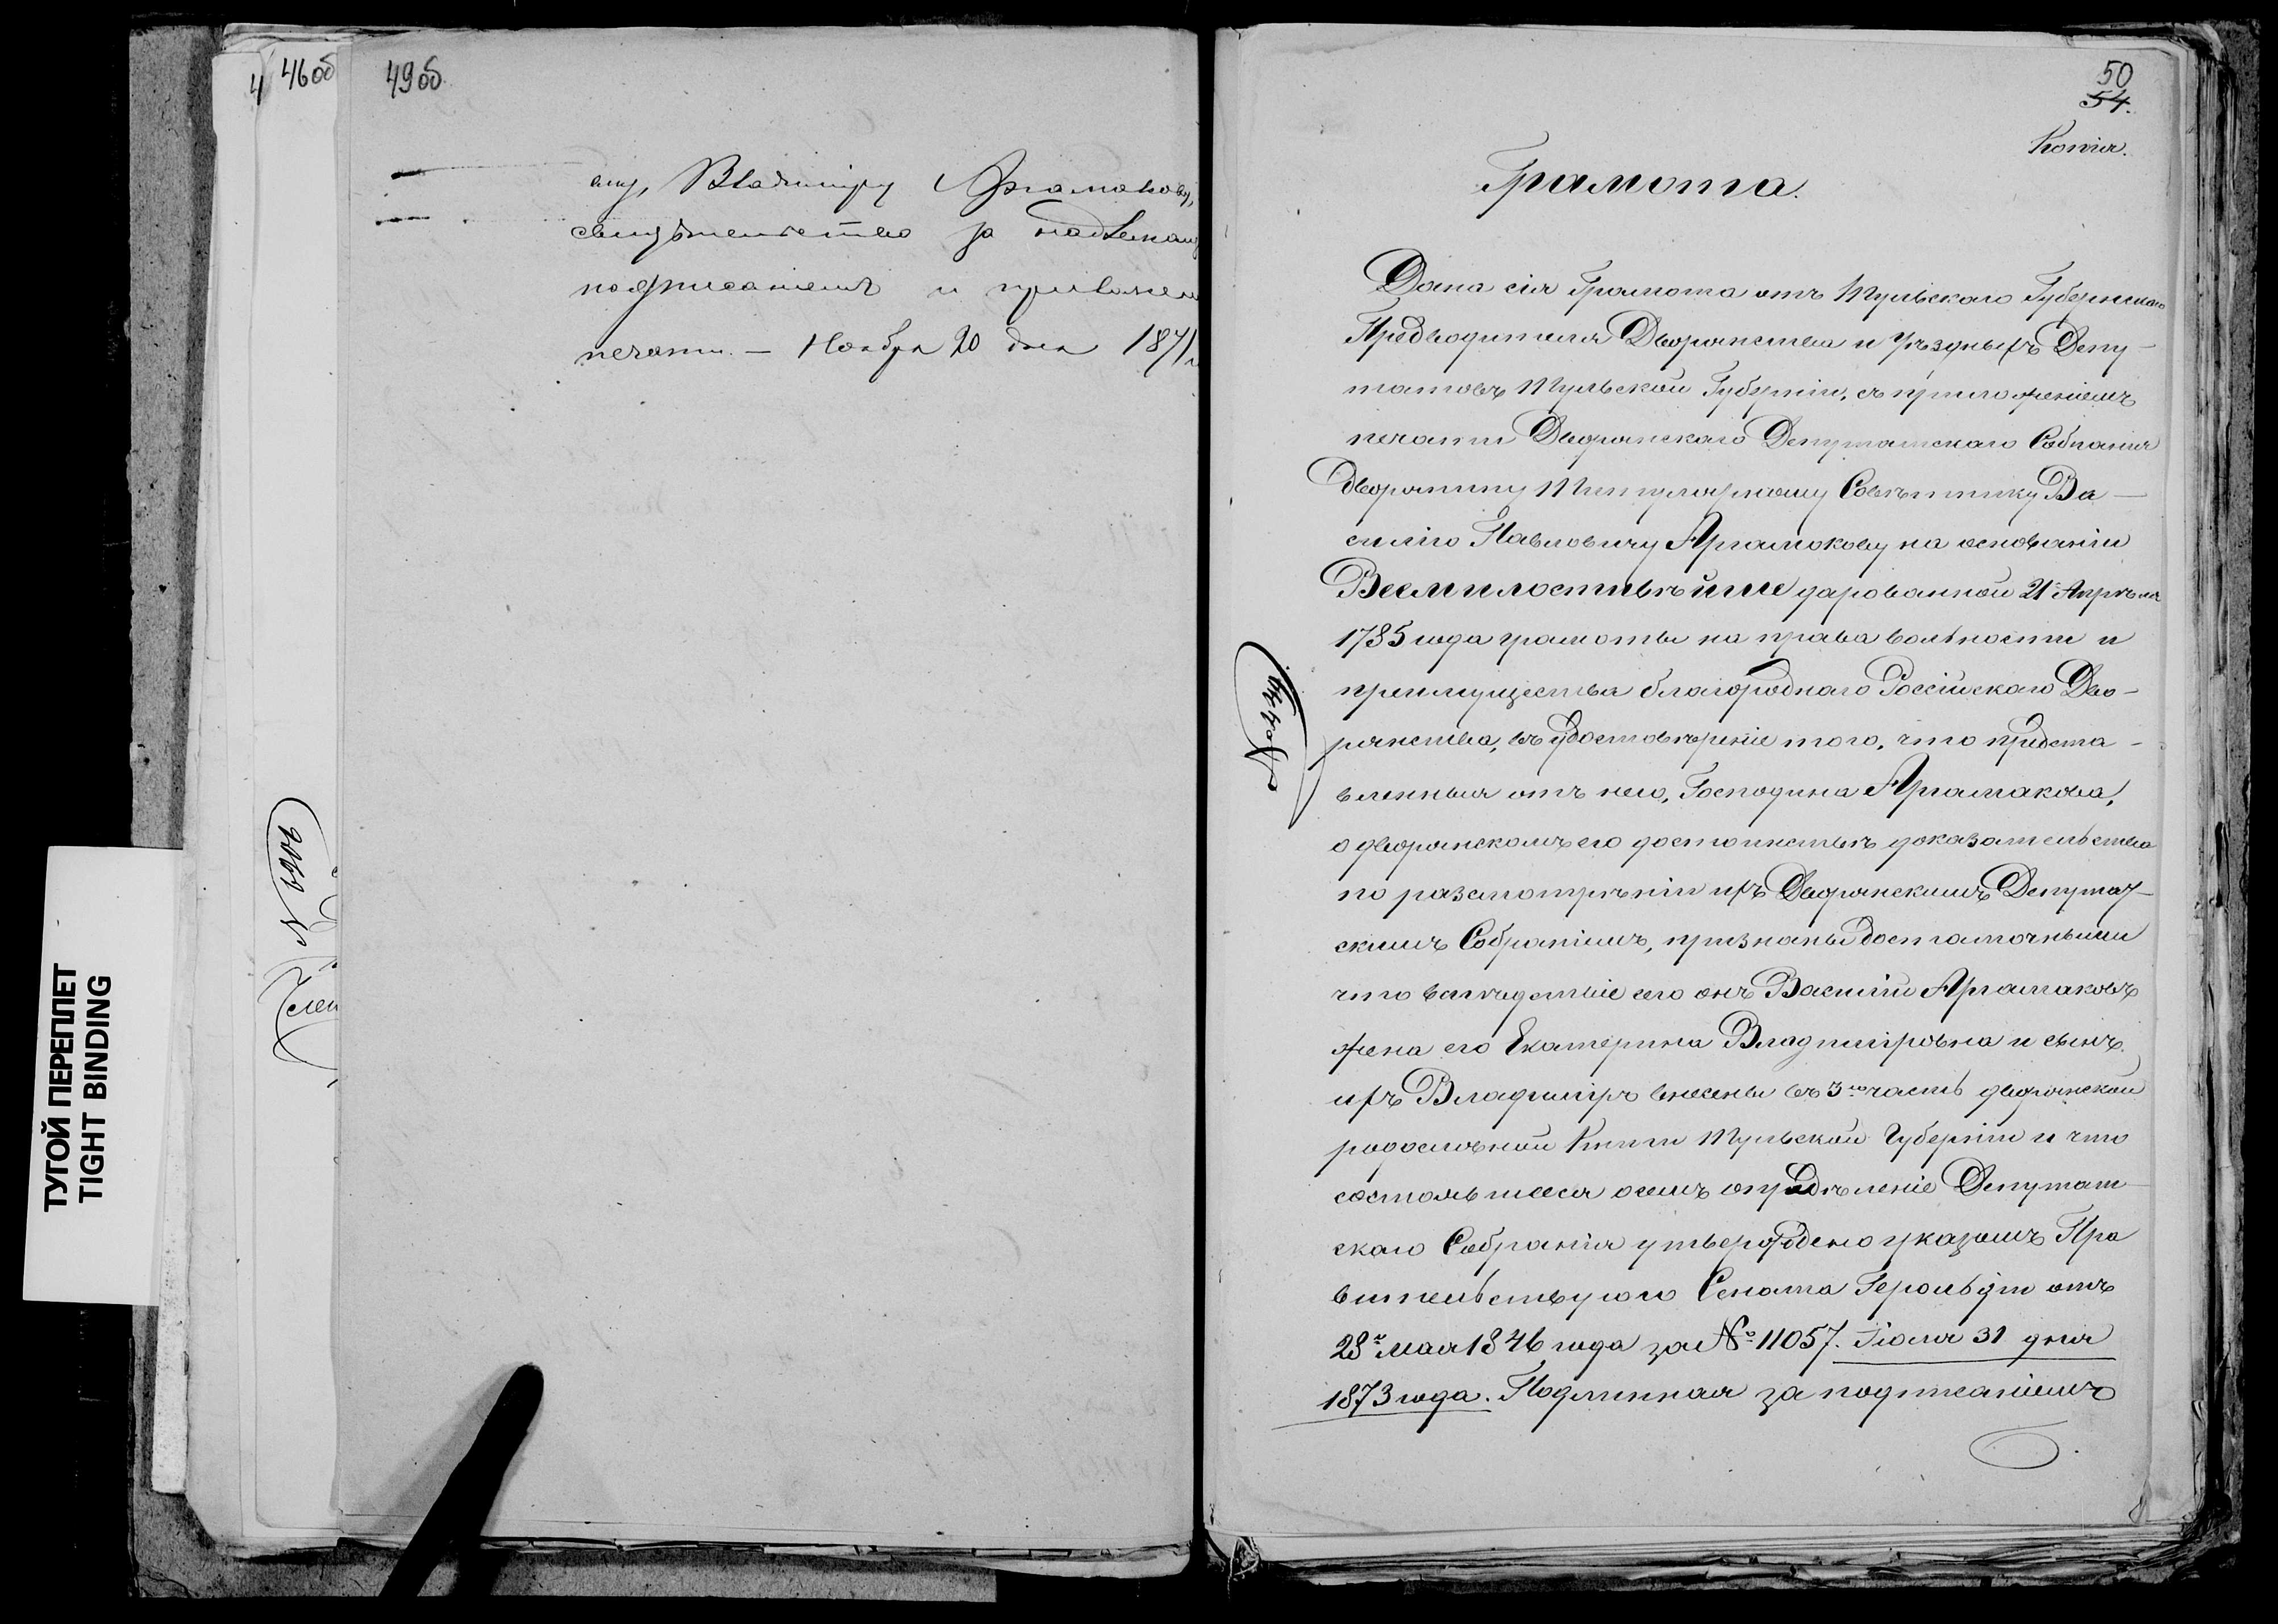 4
46об
49об
ему, Владимiру Аргамакову,
свидѣтельство за надлежащ
подписанiемъ и приложен
печати. — Ноября 20 дня 1871 г
N 6906
ТУГОЙ ПЕРЕПЛЕТ
TIGHT BINDING
50
54.
Копiя.
Грамота.
Дана сiя Грамота отъ Тульскаго Губернскаго
Предводителя Дворянства и Уѣздныхъ Депу-
татовъ Тульской Губернiи, съ приложенiемъ
печати Дворянскаго Депутатскаго Собранiя
Дворянину Титулярному Совѣтнику Ва-
силiю Павловичу Аргамокову на основанiи
Всемилостивѣйше дарованной 21 Апрѣля
1785 года грамоты на права вольности и
преимущества благороднаго Россiйскаго Дво-
рянства, въ удостовѣренiе того, что предста-
вленныя отъ него, Господина Аргамакова,
о дворянскомъ его достоинствѣ доказательства
по разсмотрѣнiи ихъ Дворянскимъ Депутат-
скимъ Собранiемъ, признаны достаточными
что вслѣдствiе сего онъ Василiй Аргамаковъ
жена его Екатерина Владимiровна и сынъ
ихъ Владимiръ внесены въ 3ю часть дворянской
родословной Книги Тульской Губернiи и что
состоявшееся о семъ опредѣленiе Депутат-
скаго Собранiя утверждено указомъ Пра
вительствующаго Сената Герольдiи отъ
28го мая 1846 года за № 11057. Iюля 31 дня
1873 года. Подлинная за подписанiемъ